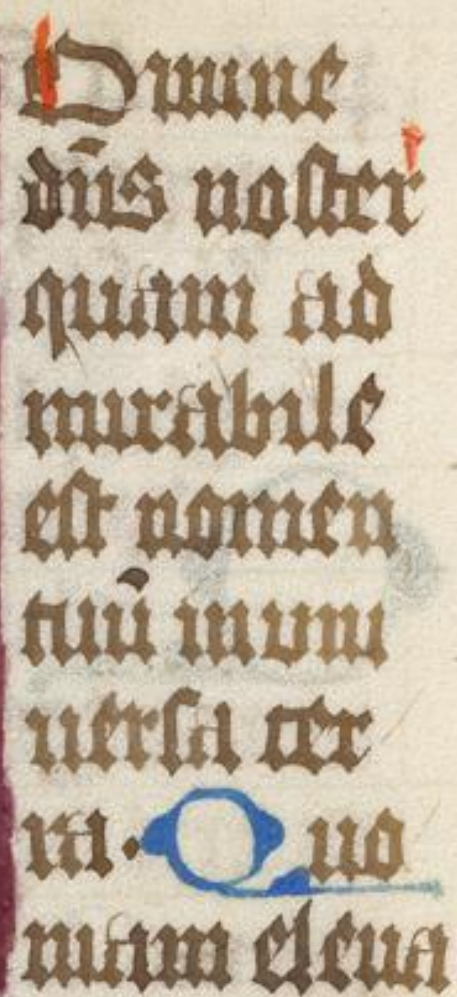 Domine
dn̄s noster
quam ad
mirabile
est nomen
tuū in vni
uersa ter
ra. Quo
niam eleua